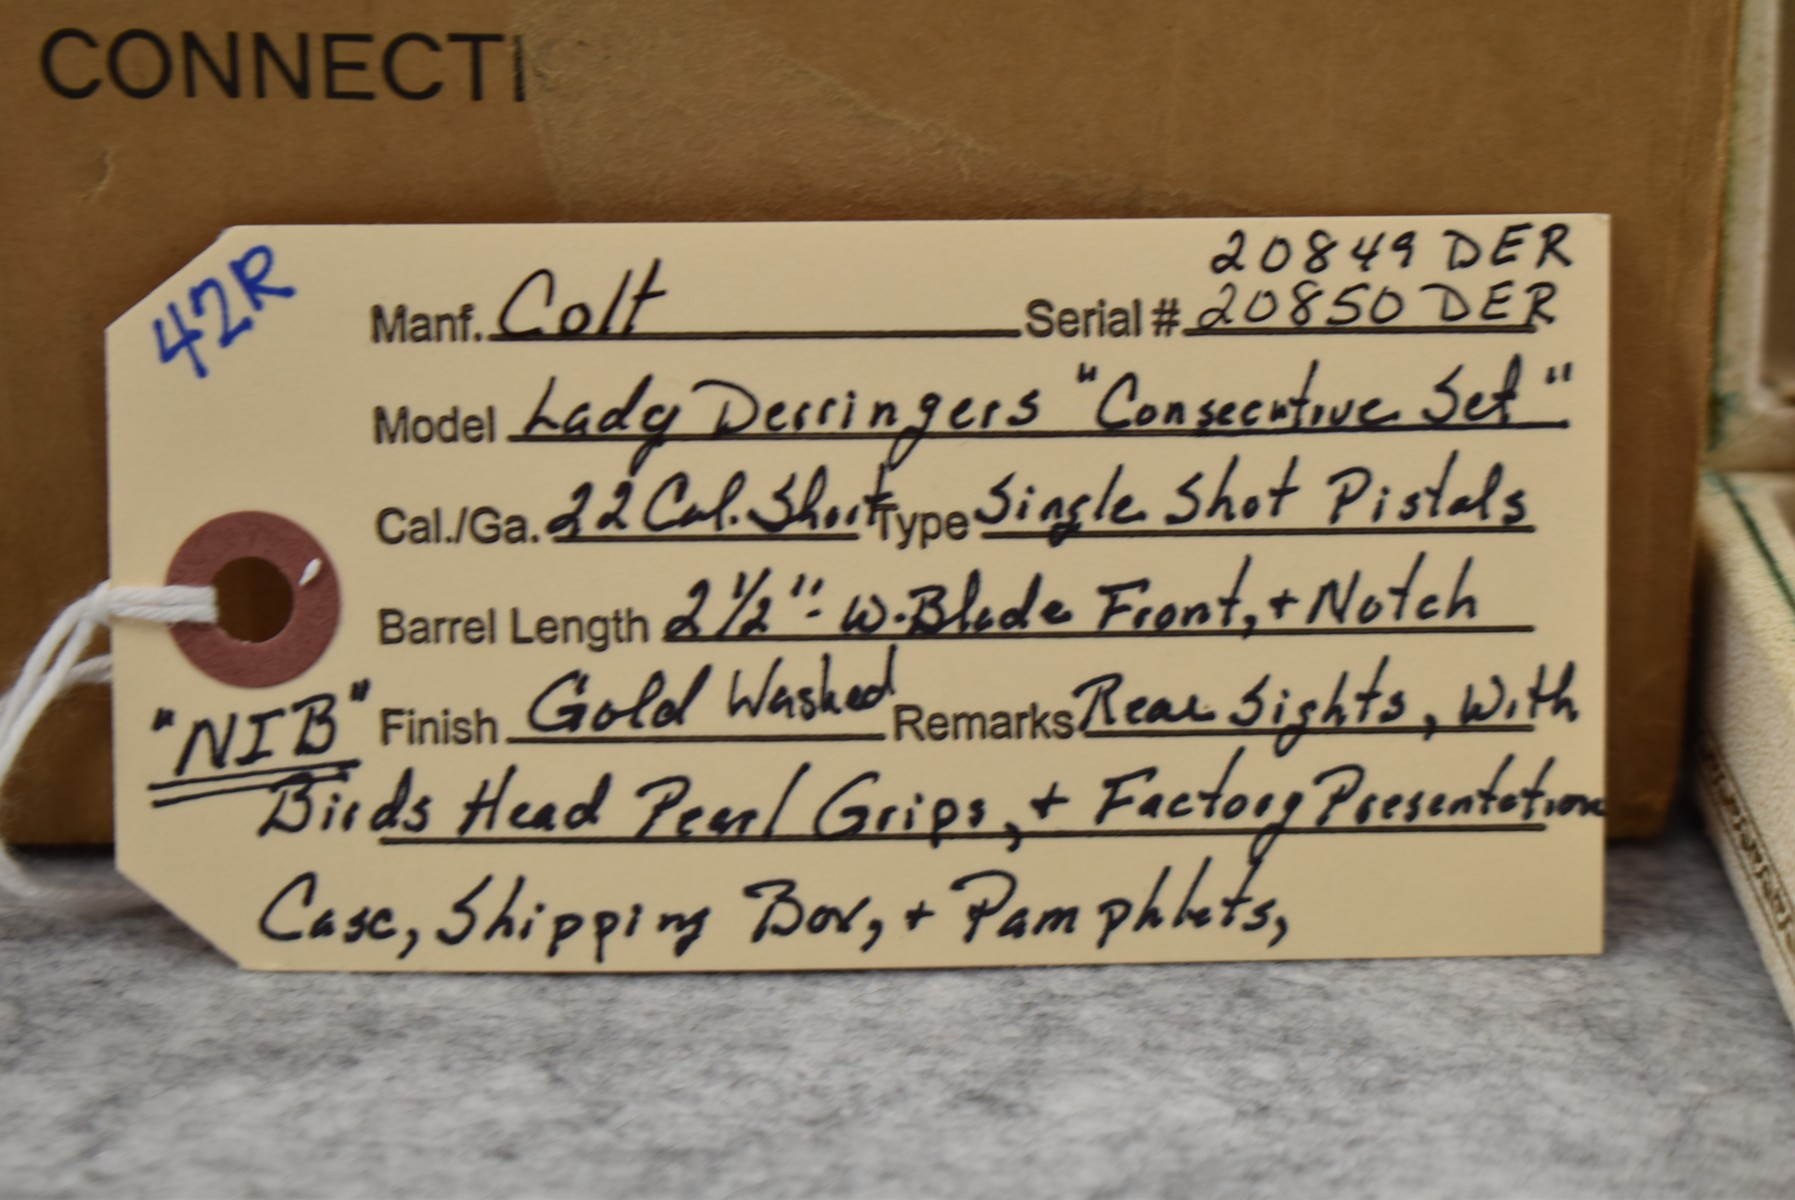 CONNECTI
42R
20849 DER
Manf. Colt Serial # 20850 DER
Model Lady Derringers "Consecutive Set"
Cal./Ga. 22 Cal. Short Type Single Shot Pistols
Barrel Length 2 1/2" - W. Blade Front, + Notch
"NIB" Finish Gold Washed Remarks Rear Sights, With
Birds Head Pearl Grips, + Factory Presentation
Case, Shipping Box, + Pamphlets,